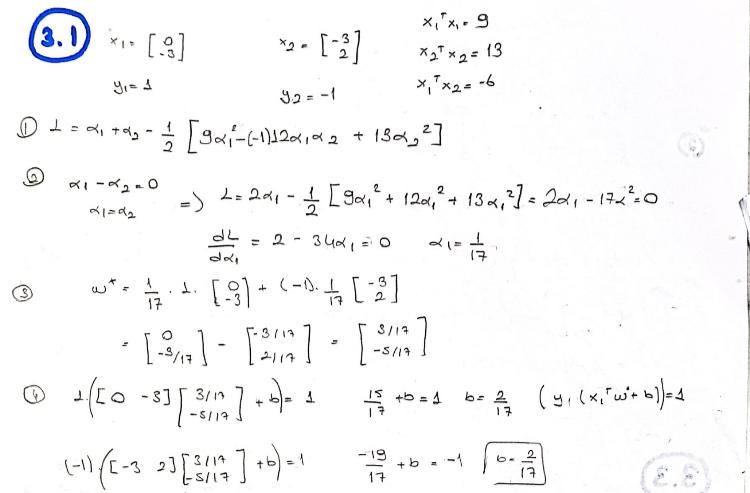 3.1 x₁ = [0 -3] x₂ = [-3 2] x₁ᵀx₁ = 9
x₂ᵀx₂ = 13
y₁ = 1 y₂ = -1 x₁ᵀx₂ = -6
① L = α₁ + α₂ - 1/2 [9α₁² - (-1)12α₁α₂ + 13α₂²]
② α₁ - α₂ = 0
α₁ = α₂ => L = 2α₁ - 1/2 [9α₁² + 12α₁² + 13α₁²] = 2α₁ - 17α² = 0
dL/dα₁ = 2 - 34α₁ = 0 α₁ = 1/17
③ w* = 1/17 · 1 · [0 -3] + (-1) · 1/17 [-3 2]
= [0 -3/17] - [-3/17 2/17] = [3/17 -5/17]
④ 1·([0 -3] [3/17 -5/17] + b) = 1 15/17 + b = 1 b = 2/17 (y₁(x₁ᵀw* + b)) = 1
(-1)·([-3 2] [3/17 -5/17] + b) = 1 -19/17 + b = -1 b = 2/17